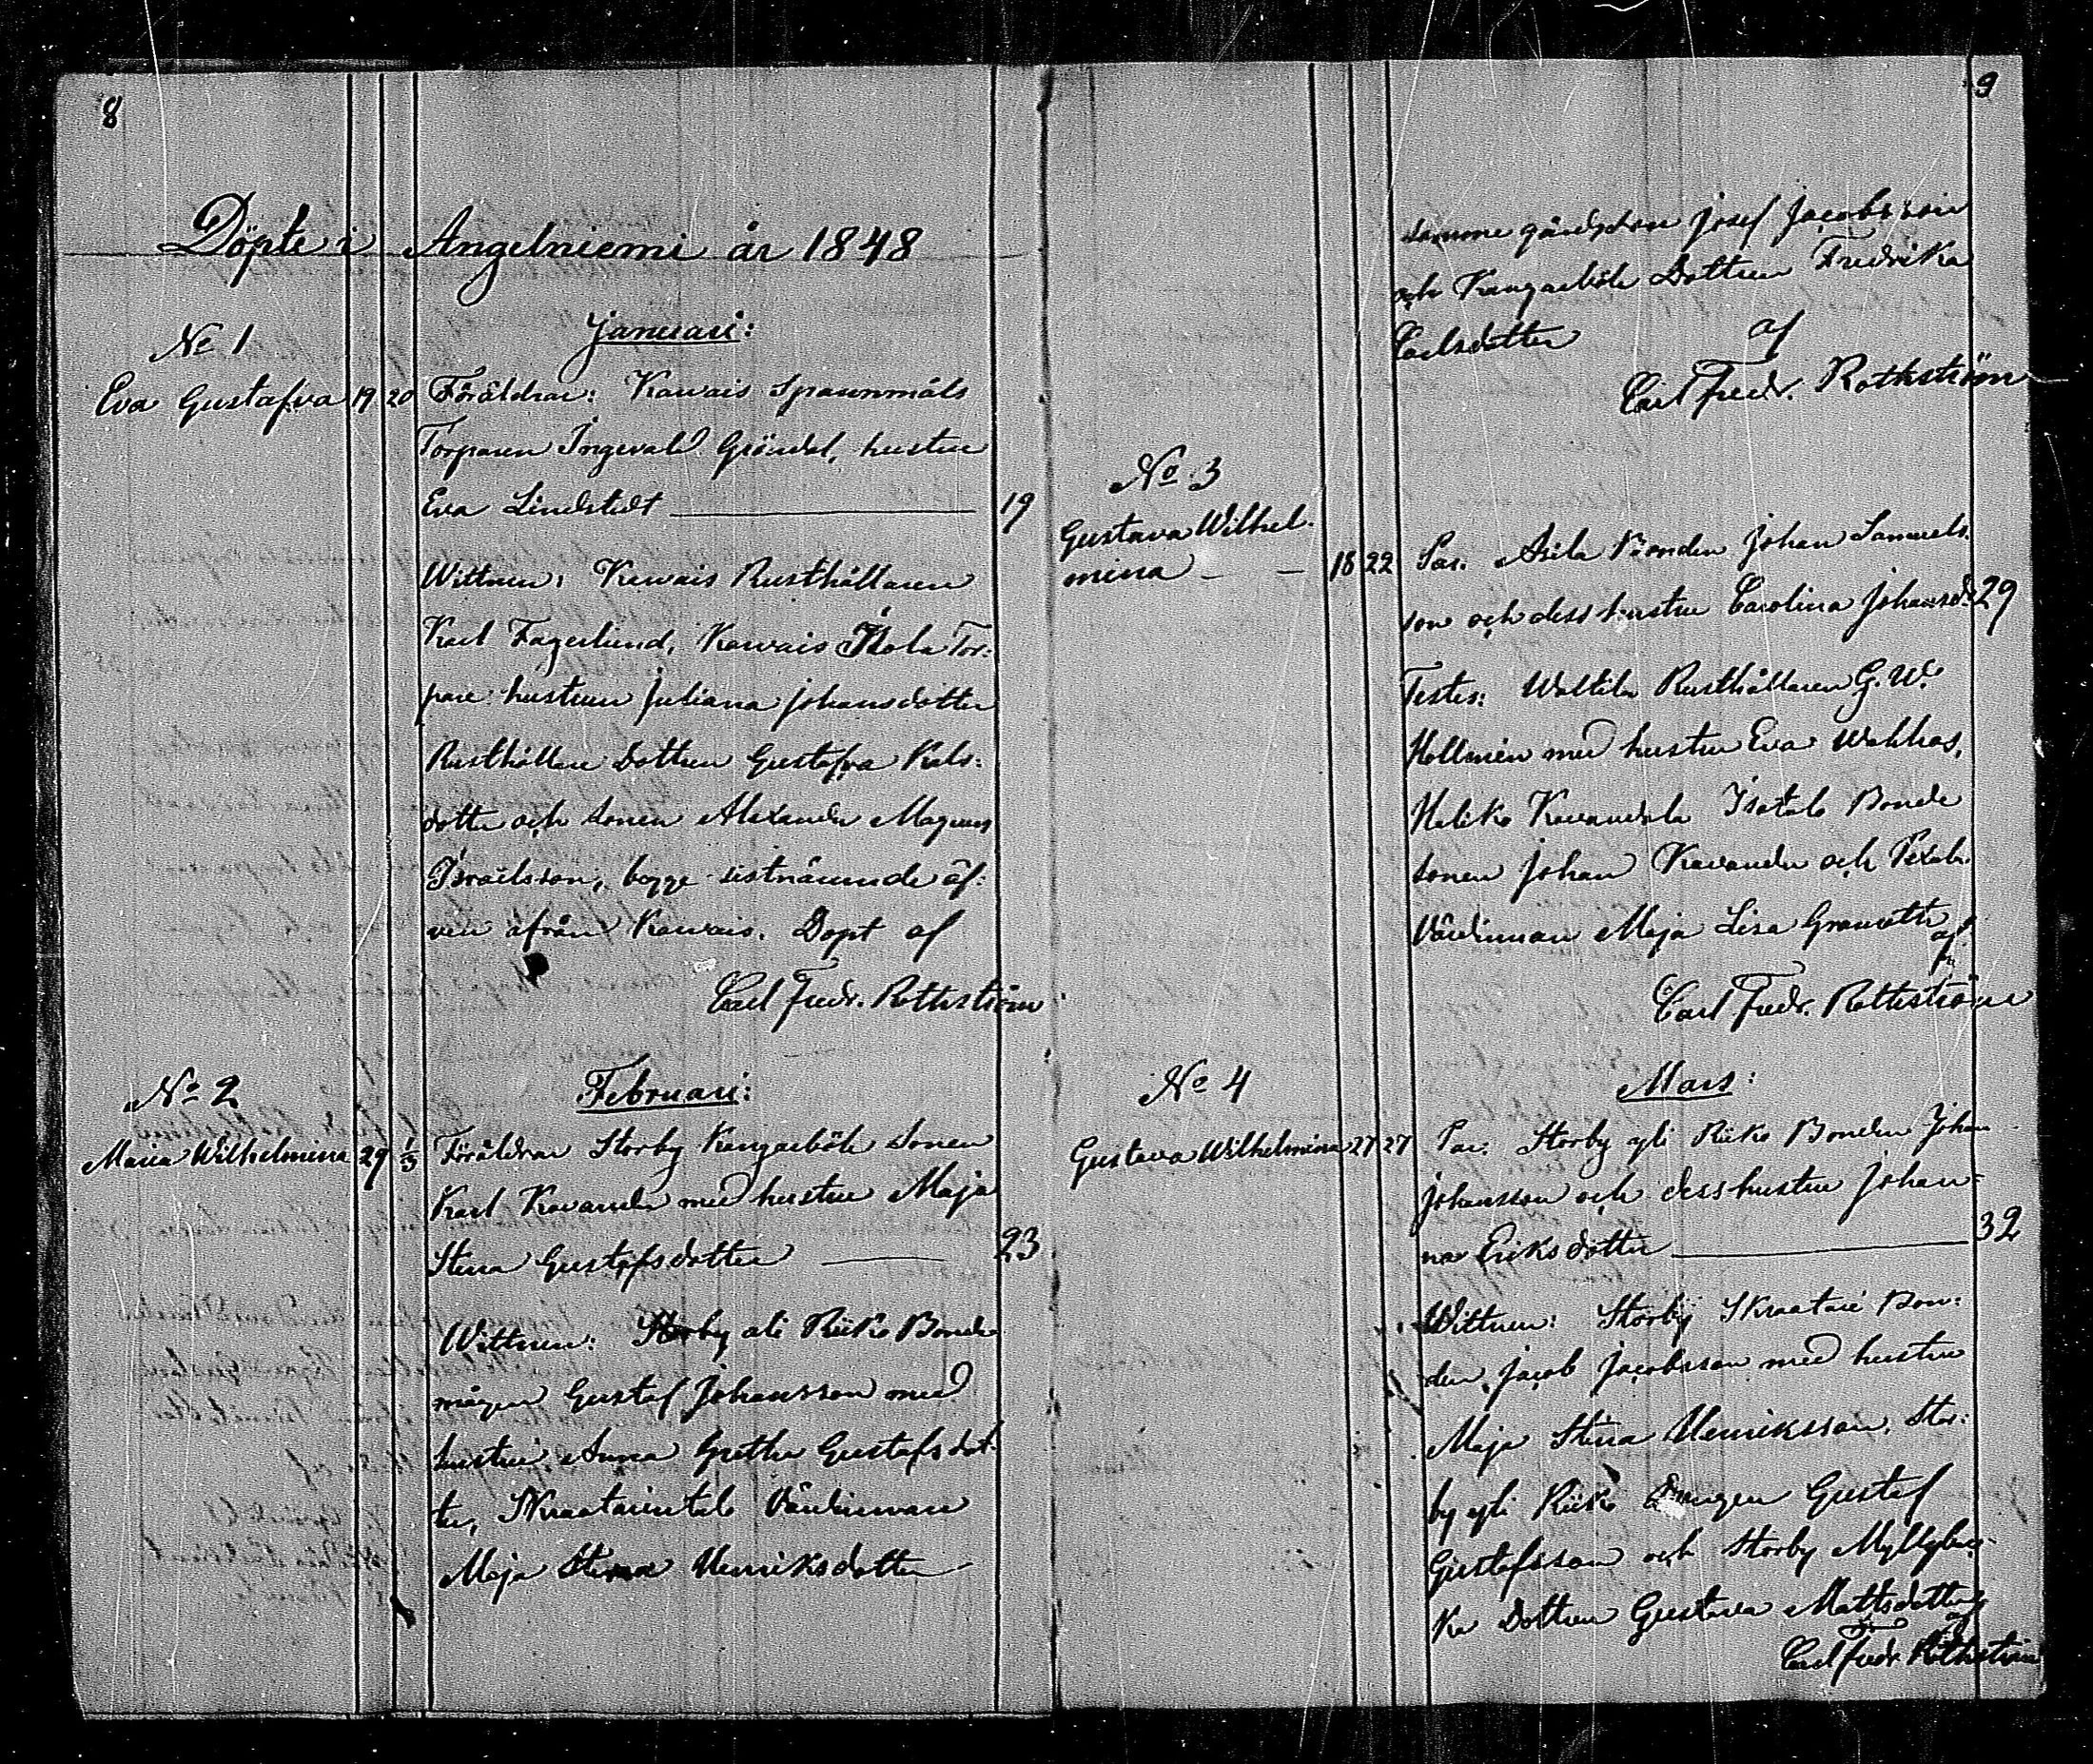 8
Döpte i Angelniemi år 1848
No 1
Januari:
Eva Gustafva 19 20 Föräldrar: Kavais Spannmåls
Torparen Ingevald Gröndal, hustru
Eva Lindstedt 19
Wittnen: Kevais Rusthållaren
Karl Fagerlund, Kavais Tor:
pare hustrun Juliana Johansdotter
Rusthållare Dottren Gustafva Kals:
dotter och sonen Alexander Magnus
Israelsson, begge sistnämnde äf:
ven ifrån Kavais. Döpt af
Carl Fredr. Rothström
No 2
Februari:
Maria Wilhelmina 29 1/3 Föräldrar Storby Kangarböle sonen
Karl Kavander med hustru Maja
Stina Gustafsdotter 23
Wittnen: Storby ali Riiko Bonde
mågen Gustaf Johansson med
hustru Anna Gretha Gustafsdot:
ter, Skraatarintalo Värdinnan
Maja Stina Henriksdotter
9
samme Josef Jacobsson
och Kangarböle Dottren Fredrika
Carlsdotter af
Carl Fredr. Rothström
No 3
Gustava Wilhel-
mina 18 22 Par. Asila Bonden Johan Samuels.
son och dess hustru Carolina Johansd. 29
Testes: Waltila Rusthållaren G. W.
Hollmén med hustru Eva
Haliko Kavandala Isotalo Bonde
sonen Johan Kavander och
Värdinnan Maja Lisa af
Carl Fredr. Rothström
No 4
Mars:
Gustava Wilhelmina 27 27 Par: Storby yli Riiko Bonden Johan
Johansson och dess hustru Johan-
na Eriksdotter 32
Wittnen: Storby Skraatari Bon:
den Jacob Jacobsson med hustru
Maja Stina Henriksson, Stor:
by yli Riiko Drengen Gustaf
Gustafsson och Storby Myllyluc-
ka Dottren Gustava Mattsdotter
af
Carl Fredr. Rothström